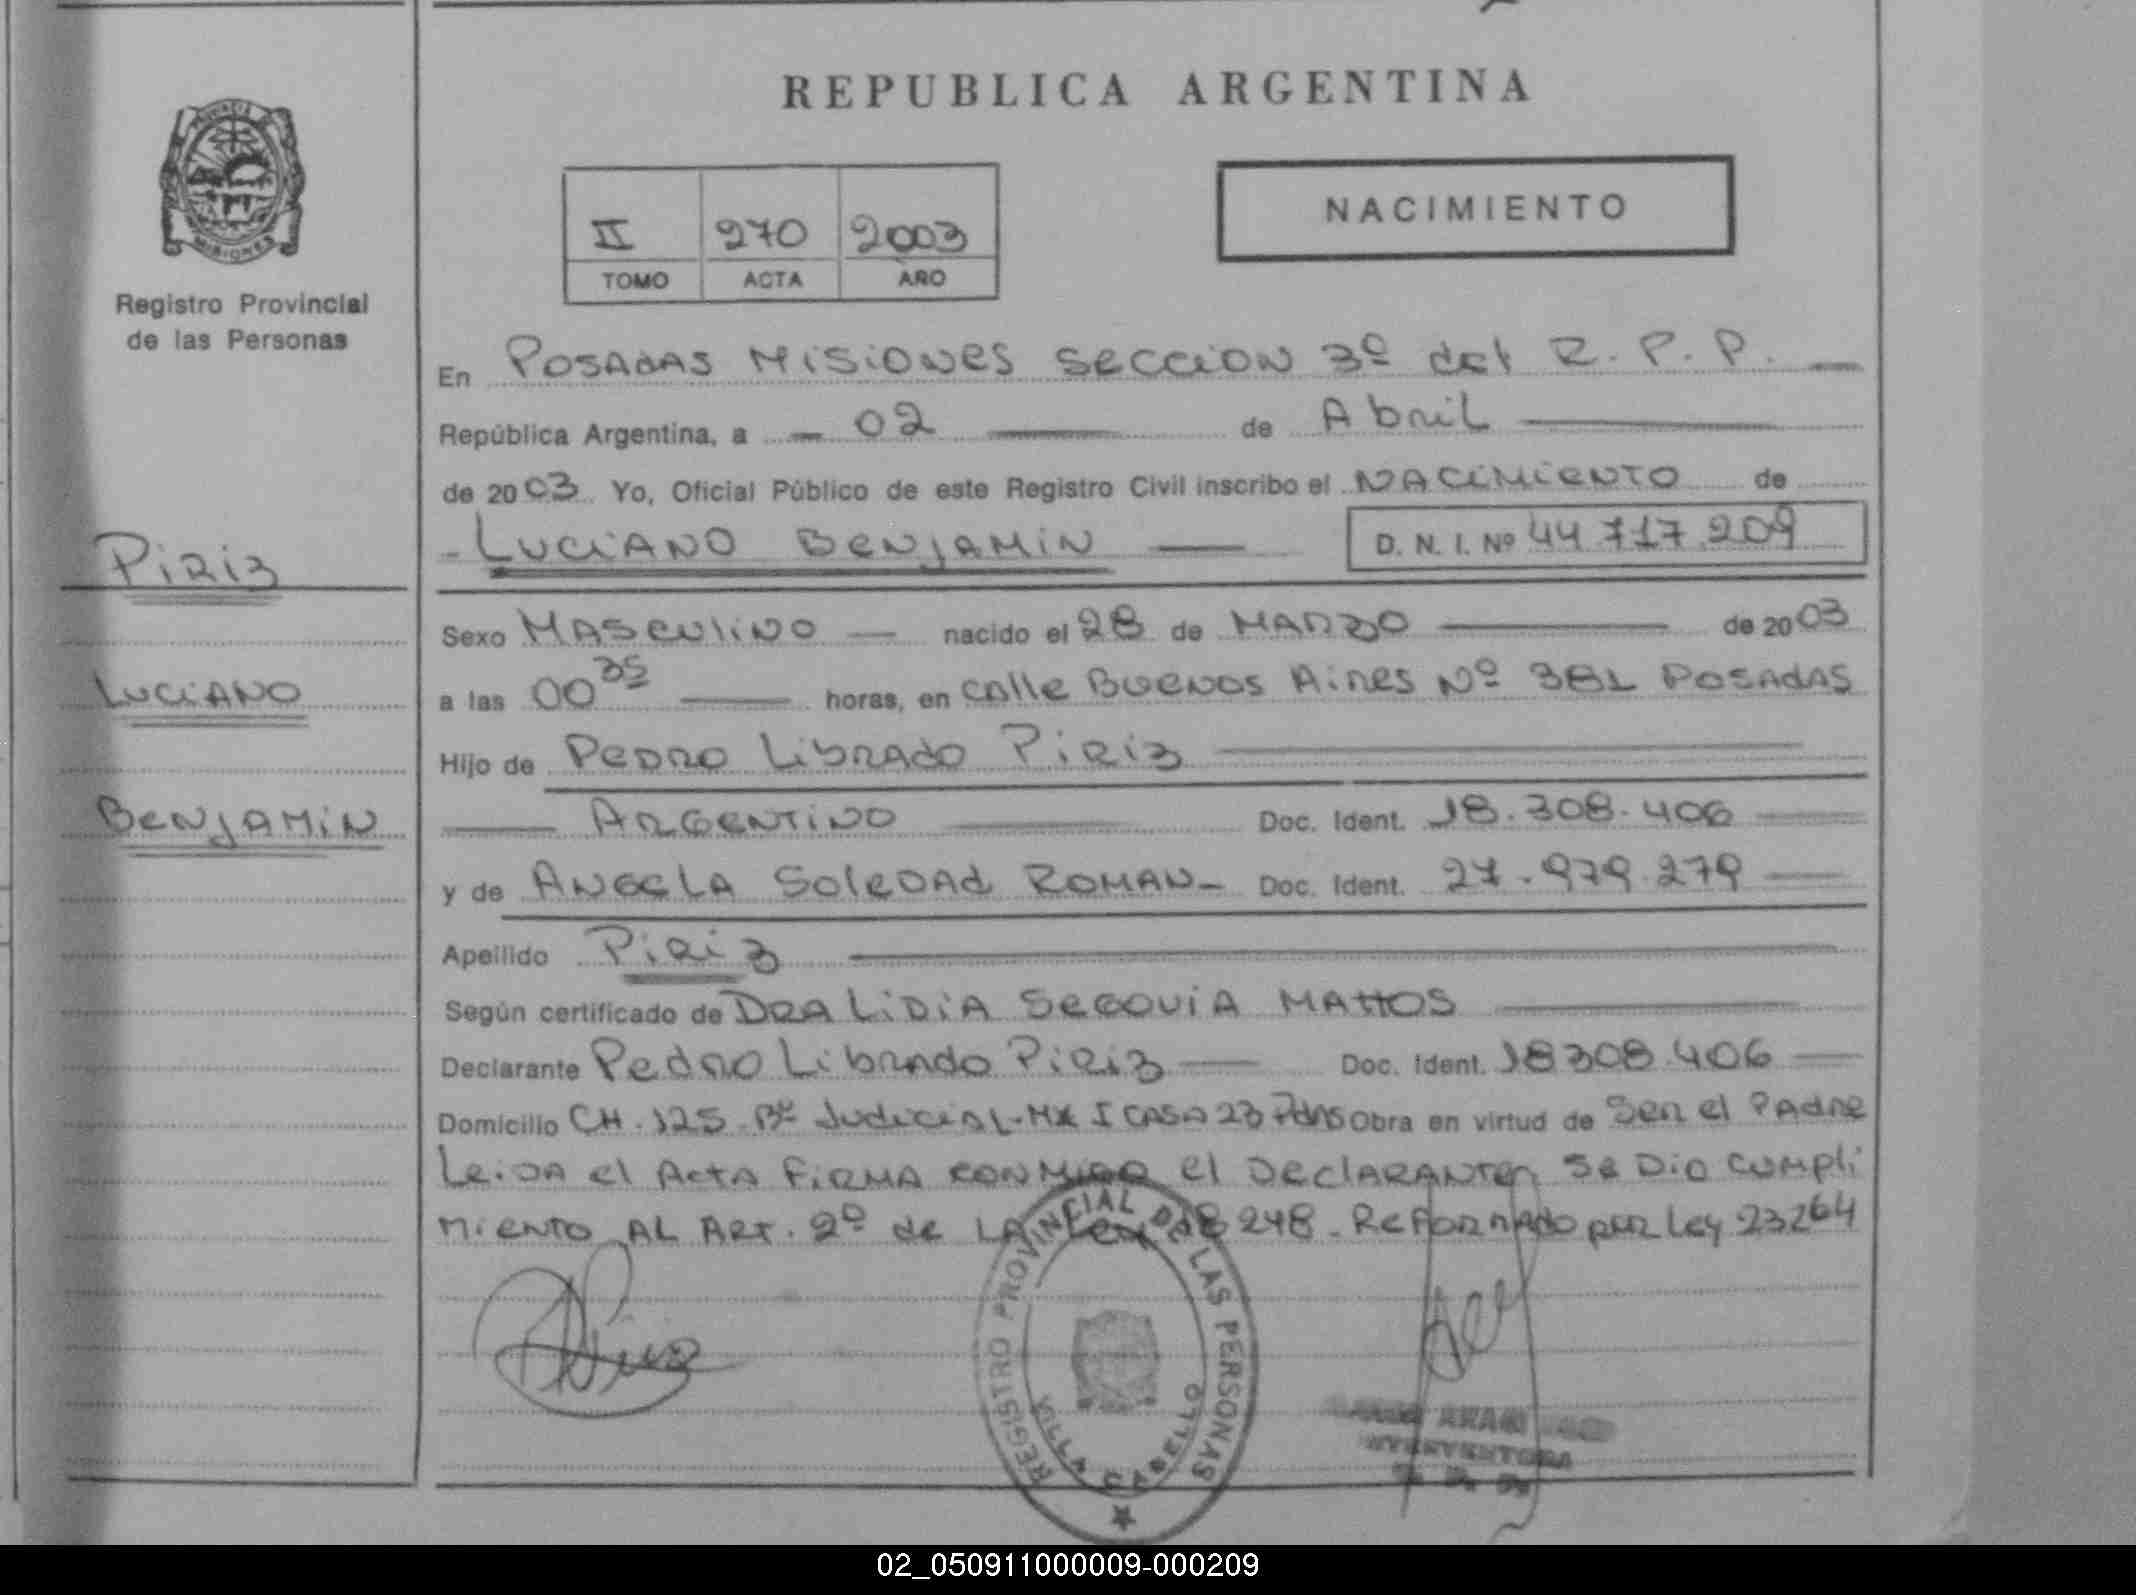 REPUBLICA ARGENTINA
PROVINCIA
MISIONES
Registro Provincial
de las Personas
NACIMIENTO
II 270 2003
TOMO ACTA AÑO
En POSADAS MISIONES SECCION 3º del R.P.P.
República Argentina, a 02 de Abril
de 2003 Yo, Oficial Público de este Registro Civil inscribo el NACIMIENTO de
LUCIANO BENJAMIN D. N. I. Nº 44 717 209
PIRIZ
LUCIANO
BENJAMIN
Sexo MASCULINO nacido el 28 de MARZO de 2003
a las 00 35 horas, en calle BUENOS Aires Nº 381 POSADAS
Hijo de PEDRO LibRADO PIRIZ
ARGENTINO Doc. Ident. 18.308.406
y de ANGELA SOLEDAD ROMAN Doc. Ident. 27.979.279
Apellido PIRIZ
Según certificado de DRA LIDIA SEGOVIA MATTOS
Declarante Pedro Librado PIRIZ Doc. Ident. 18308.406
Domicilio CH. 125 Bº Judicial - I CASA 23 Pdas Obra en virtud de Ser el PADRE
Leida el ACTA FIRMA CONMIGO el DECLARANTE, Se Dio cumpli
miento AL ART. 2º de LA Ley 18248 - REFORMADO por Ley 23264
REGISTRO PROVINCIAL DE LAS PERSONAS
VILLA CABELLO
INTERVENTORA
02_050911000009-000209